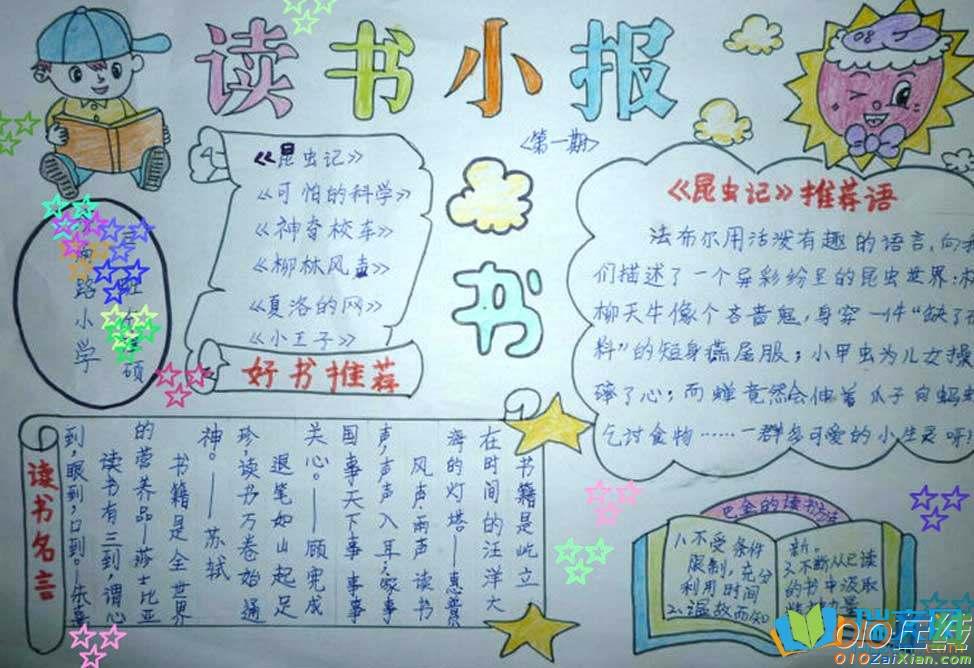 读书小报
<第一期>
《昆虫记》
《可怕的科学》
《神奇校车》
《柳林风声》
《夏洛的网》
《小王子》
好书推荐
书
路小学
08
《昆虫记》推荐语
法布尔用活泼有趣的语言,向
们描述了一个异彩纷呈的昆虫世界:
柳天牛像个吝啬鬼,身穿一件“缺了
料”的短身燕尾服;小甲虫为儿女操
碎了心;而蝉竟然会伸着爪子向蚂
乞讨食物……一群多可爱的小生灵呀
读书名言
书籍是屹立
在时间的汪洋大
海的灯塔。——惠普
风声雨声读书
声,声声入耳;家事
国事天下事事事
关心。——顾宪成
退笔如山起足
珍,读书万卷始通
神。——苏轼
书籍是全世界
的营养品—莎士比亚
读书有三到,谓心
到,眼到,口到。—朱熹
巴金的读书方法
1、不受条件
限制,充分
利用时间
2、温故而知
新。
3、不断从已读
的书中汲取
在线
010ZaiXian.com